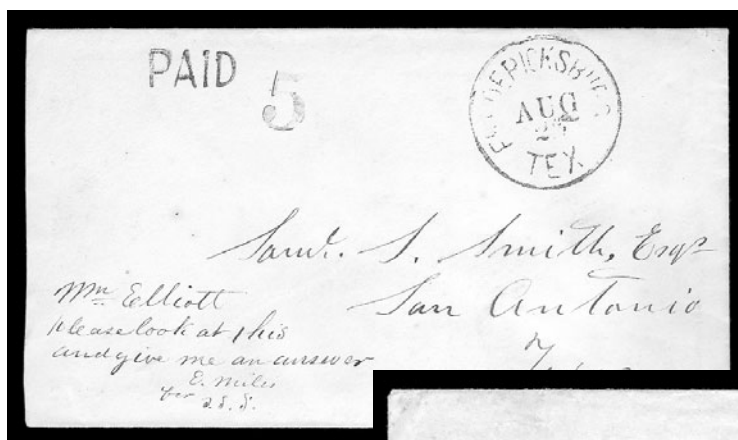 PAID 5
FREDERICKSBURG
AUG
TEX.
Saml. S. Smith, Esqr
San Antonio
Wm Elliott
please look at this
and give me an answer
E. Miles
per S.S.S.